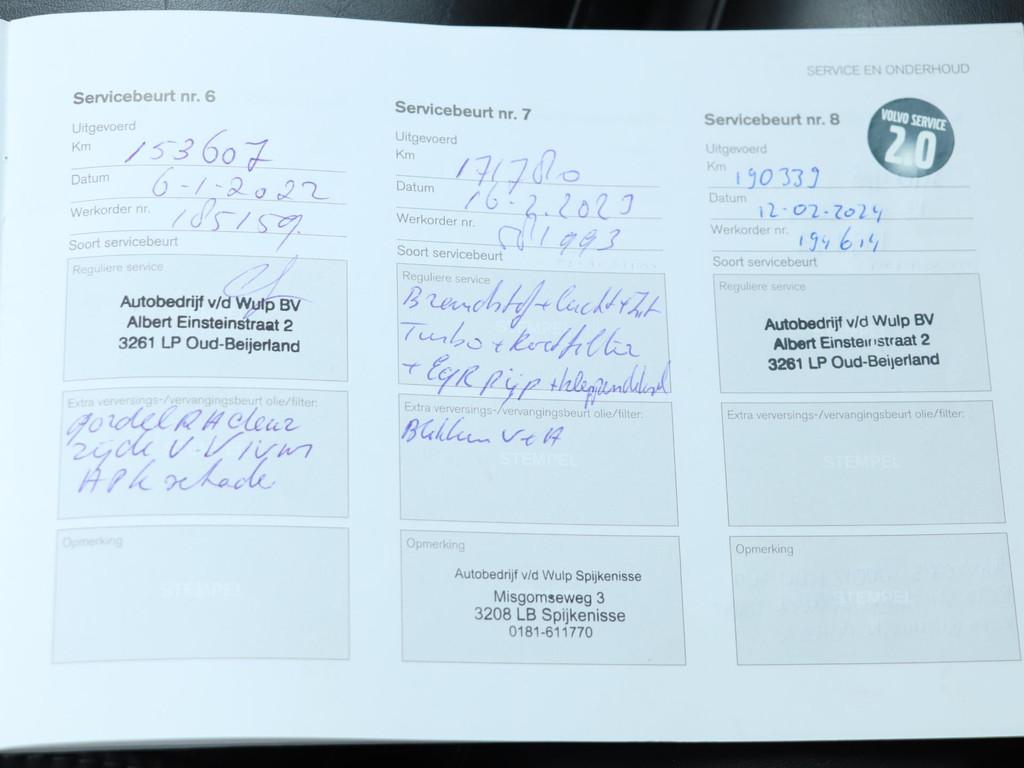 SERVICE EN ONDERHOUD
Servicebeurt nr. 6
Uitgevoerd
Km 153607
Datum 6-1-2022
Werkorder nr. 185159
Soort servicebeurt
Reguliere service
Autobedrijf v/d Wulp BV
Albert Einsteinstraat 2
3261 LP Oud-Beijerland
Extra verversings-/vervangingsbeurt olie/filter:
gordel RA
zijde V-V ivm
APK schade
Opmerking
STEMPEL
Servicebeurt nr. 7
Uitgevoerd
Km 171780
Datum 16-2.2023
Werkorder nr. 1993
Soort servicebeurt
Reguliere service
Brandstof + lucht + Int
Turbo + Roetfilter
+ EGR pijp + kleppendeksel
Extra verversings-/vervangingsbeurt olie/filter:
V+A
STEMPEL
Opmerking
Autobedrijf v/d Wulp Spijkenisse
Misgomseweg 3
3208 LB Spijkenisse
0181-611770
Servicebeurt nr. 8
VOLVO SERVICE
2.0
Uitgevoerd
Km 190339
Datum 12-02-2024
Werkorder nr. 194614
Soort servicebeurt
Reguliere service
Autobedrijf v/d Wulp BV
Albert Einsteinstraat 2
3261 LP Oud-Beijerland
Extra verversings-/vervangingsbeurt olie/filter:
STEMPEL
Opmerking
STEMPEL